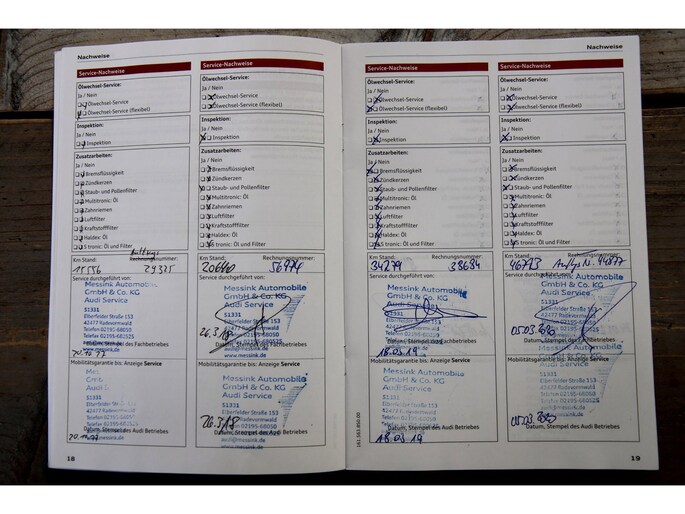 Nachweise
Service-Nachweise
Ölwechsel-Service:
Ja / Nein
Ölwechsel-Service
Ölwechsel-Service (flexibel)
Inspektion:
Ja / Nein
Inspektion
Zusatzarbeiten:
Ja / Nein
Bremsflüssigkeit
Zündkerzen
Staub- und Pollenfilter
Multitronic: Öl
Zahnriemen
Luftfilter
Kraftstofffilter
Haldex: Öl
S tronic: Öl und Filter
Km Stand: Rechnungsnummer:
15556 29325
Service durchgeführt von:
Messink Automobile
GmbH & Co. KG
Audi Service
51331
Elberfelder Straße 153
42477 Radevormwald
Telefon 02195-68050
Datum, Stempel des Fachbetriebes
Mobilitätsgarantie bis: Anzeige Service
GmbH
Audi
51331
Elberfelder Straße 153
42477 Radevormwald
Telefon 02195-68050
Datum, Stempel des Audi Betriebes
18
Service-Nachweise
Ölwechsel-Service:
Ja / Nein
Ölwechsel-Service
Ölwechsel-Service (flexibel)
Inspektion:
Ja / Nein
Inspektion
Zusatzarbeiten:
Ja / Nein
Bremsflüssigkeit
Zündkerzen
Staub- und Pollenfilter
Multitronic: Öl
Zahnriemen
Luftfilter
Kraftstofffilter
Haldex: Öl
S tronic: Öl und Filter
Km Stand: Rechnungsnummer:
20640 56974
Service durchgeführt von:
Messink Automobile
GmbH & Co. KG
Audi Service
51331
Elberfelder Straße 153
42477 Radevormwald
Telefon 02195-68050
26.3.18
Datum, Stempel des Fachbetriebes
www.messink.de
Mobilitätsgarantie bis: Anzeige Service
Messink Automobile
GmbH & Co. KG
Audi Service
51331
Elberfelder Straße 153
42477 Radevormwald
Telefon 02195-68050
26.3.18
Datum, Stempel des Audi Betriebes
audi@messink.de
www.messink.de
Nachweise
Service-Nachweise
Ölwechsel-Service:
Ja / Nein
Ölwechsel-Service
Ölwechsel-Service (flexibel)
Inspektion:
Ja / Nein
Inspektion
Zusatzarbeiten:
Ja / Nein
Bremsflüssigkeit
Zündkerzen
Staub- und Pollenfilter
Multitronic: Öl
Zahnriemen
Luftfilter
Kraftstofffilter
Haldex: Öl
S tronic: Öl und Filter
Km Stand: Rechnungsnummer:
34279 38684
Service durchgeführt von:
Messink Automobile
GmbH & Co. KG
Audi Service
51331
Elberfelder Straße 153
42477 Radevormwald
Telefon 02195-68050
Datum, Stempel des Fachbetriebes
18.03.19
Mobilitätsgarantie bis: Anzeige Service
Messink Automobile
GmbH & Co. KG
Audi Service
51331
Elberfelder Straße 153
42477 Radevormwald
Telefon 02195-68050
Datum, Stempel des Audi Betriebes
18.03.19
Service-Nachweise
Ölwechsel-Service:
Ja / Nein
Ölwechsel-Service
Ölwechsel-Service (flexibel)
Inspektion:
Ja / Nein
Inspektion
Zusatzarbeiten:
Ja / Nein
Bremsflüssigkeit
Zündkerzen
Staub- und Pollenfilter
Multitronic: Öl
Zahnriemen
Luftfilter
Kraftstofffilter
Haldex: Öl
S tronic: Öl und Filter
Km Stand: Rechnungsnummer:
46713 44877
Service durchgeführt von:
Messink Automobile
GmbH & Co. KG
Audi Service
51331
Elberfelder Straße 153
42477 Radevormwald
Datum, Stempel des Fachbetriebes
Mobilitätsgarantie bis: Anzeige Service
Messink Automobile
GmbH & Co. KG
Audi Service
51331
Elberfelder Straße 153
42477 Radevormwald
Telefon 02195-68050
Datum, Stempel des Audi Betriebes
19